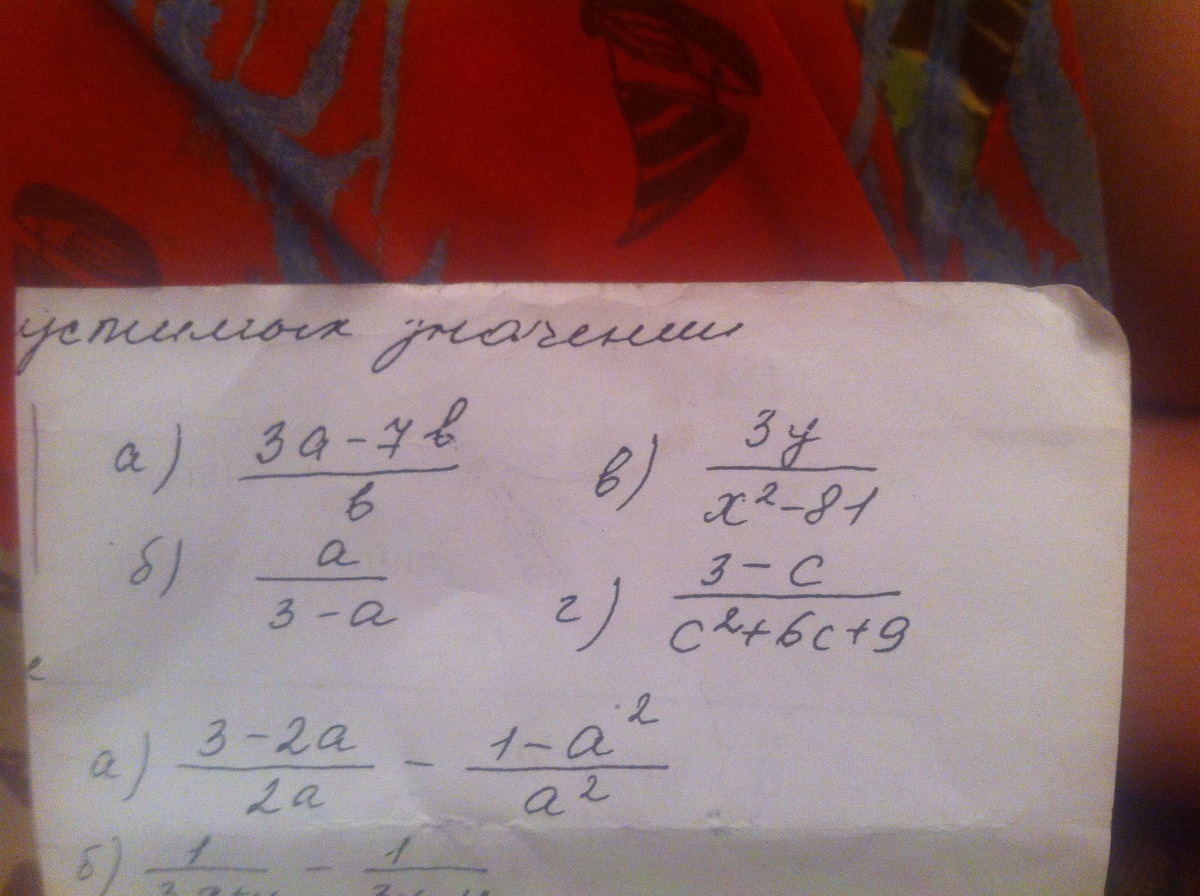 устимых значений
а) (3a-7b)/b в) 3y/(x²-81)
б) a/(3-a) г) (3-c)/(c²+6c+9)
а) (3-2a)/(2a) - (1-a²)/a²
б) 1/ - 1/